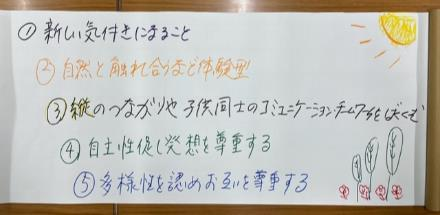 ①新しい気付きになること
② 自然と触れ合うなど体験型
③ 縦のつながりや子供同士のコミュニケーションチームワークをはぐくむ
④ 自主性促し発想を尊重する
⑤ 多様性を認めお互いを尊重する